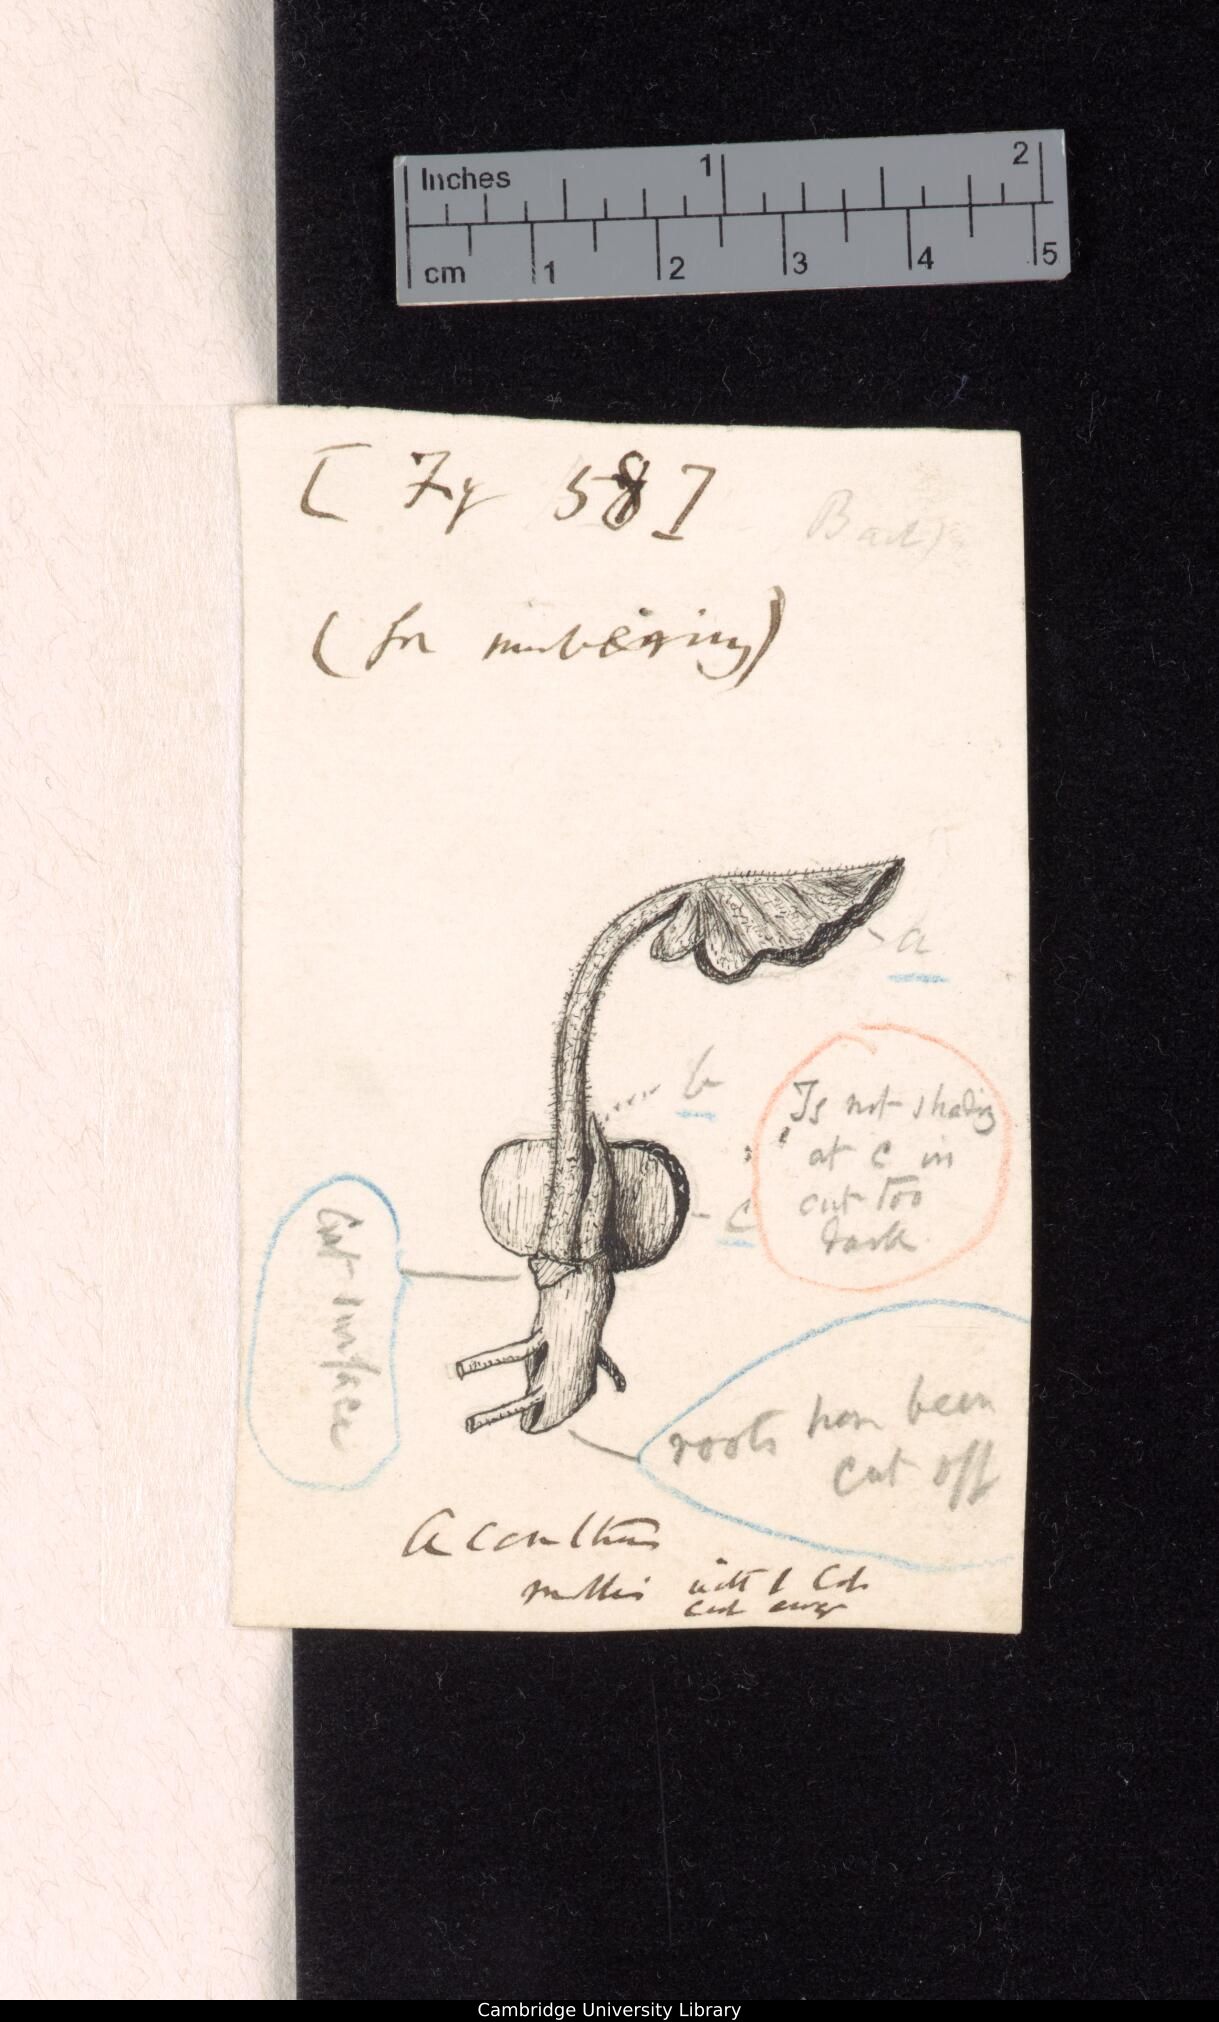 Inches 1 2
cm 1 2 3 4 5
[Fig 58]
(for numbering)
a
b
Is not shading
at c in
cut too
dark
c
Cut surface
roots have been
cut off
Acanthus
mollis with 1 Cot.
cut away
Cambridge University Library